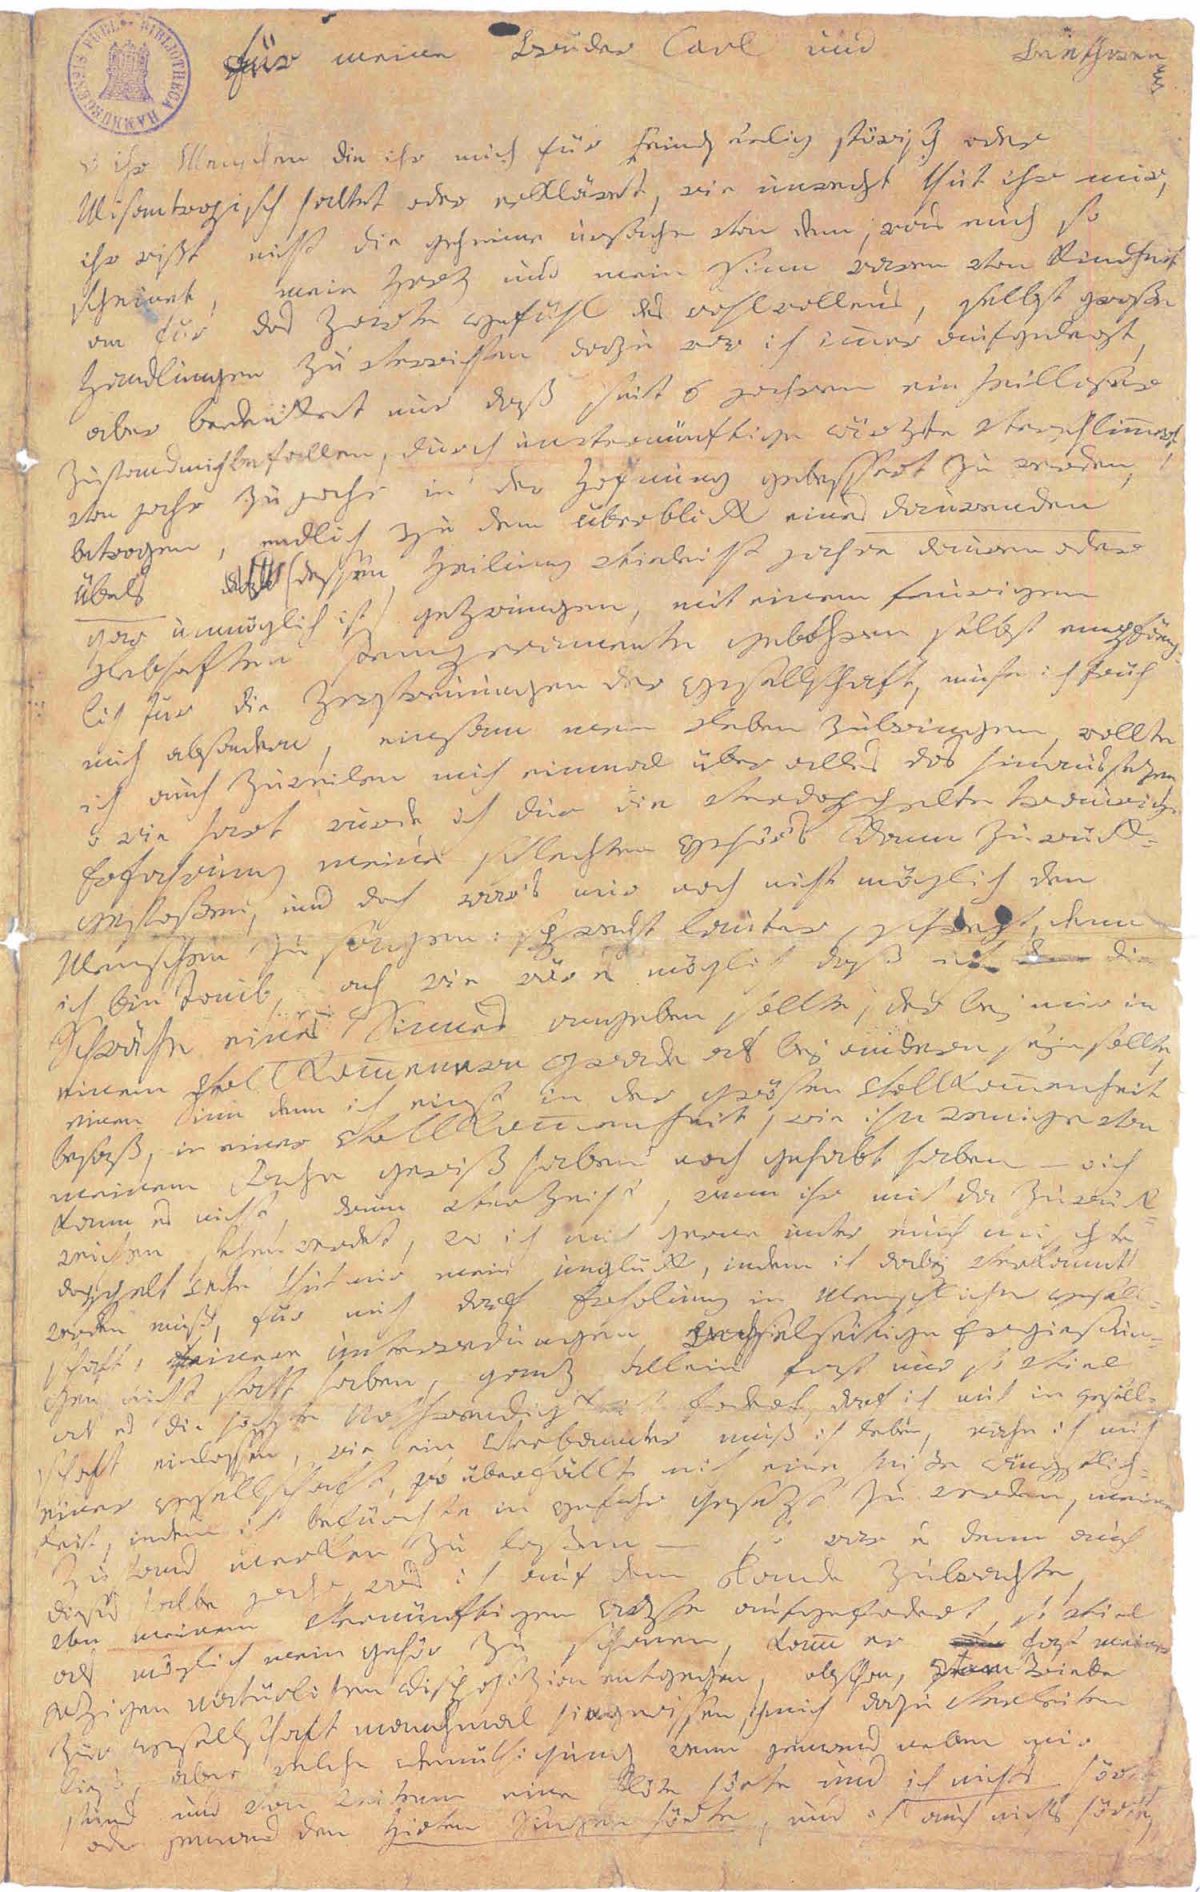 für meine Brüder Carl und Beethowen
o ihr Menschen die ihr mich für feindseelig störisch oder
Misantropisch haltet oder erkläret, wie unrecht thut ihr mir,
ihr wißt nicht die geheime ursache von dem, was euch so
scheinet, mein Herz und mein Sinn waren von Kindheit
an für das Zarte Gefühl des wohlwollens, selbst große
Handlungen zu verrichten dazu war ich imer aufgelegt,
aber bedenket nur daß seit 6 jahren ein heilloser
Zustand mich befallen, durch unvernünftige ärzte verschlimert,
von jahr zu jahr in der Hofnung gebessert zu werden,
betrogen, endlich zu dem überblick eines daurenden
Übels (dessen Heilung vieleicht jahre dauren oder
gar unmöglich ist) gezwungen, mit einem feurigen
Lebhaften Temperamente gebohren selbst empfäng-
lich für die Zerstreuungen der Gesellschaft, muste ich früh
mich absondern, einsam mein Leben zubringen, wollte
ich auch zuweilen mich einmal über alles das hinaussezen,
o wie hart wurde ich dur die verdoppelte traurige
Erfahrung meines schlechten Gehör's dann zurück-
gestoßen, und doch war's mir noch nicht möglich den
Menschen zu sagen: sprecht lauter, schrejt, denn
ich bin Taub, ach wie wär es möglich daß ich die
Schwäche eines Sinnes angeben sollte, der bej mir in
einem Vollkommenern Grade als bej andern sejn sollte,
einen Sinn denn ich einst in der grösten Vollkommenheit
besaß, in einer Vollkommenheit, wie ihn wenige von
meinem Fache gewiß haben noch gehabt haben – o ich
kann es nicht, drum verzeiht, wenn ihr mich da zurück-
weichen sehen werdet, wo ich mich gerne unter euch mischte
doppelt wehe thut mir mein unglück, indem ich dabej verkannt
werden muß, für mich darf Erholung in Menschlicher Gesell-
schaft, feinere unterredungen, wechselseitige Ergießun-
gen nicht statt haben, ganz allein fast nur so viel
als es die höchste Nothwendigkeit fodert, darf ich mich in Gesell-
schaft einlassen, wie ein Verbannter muß ich leben, nahe ich mich
einer Gesellschaft, so überfällt mich eine heiße Ängstlich-
keit, indem ich befürchte in Gefahr gesezt zu werden, meinen
Zustand merken zu lassen – so war es denn auch
dieses halbe jahr, was ich auf dem Lande zubrachte,
von meinem Vernünftigen Arzte aufgefodert, so viel
als möglich mein Gehör zu schonen, kamm er fast meiner
jezigen natürlichen Disposizion entgegen, obschon, vom Triebe
zur Gesellschaft manchmal hingerissen, ich mich dazu verleiten
ließ, aber welche Demüthigung wenn jemand neben mir
stund und von weitem eine Flöte hörte und ich nichts hörte
oder jemand den Hirten Singen hörte, und ich auch nichts hörte,